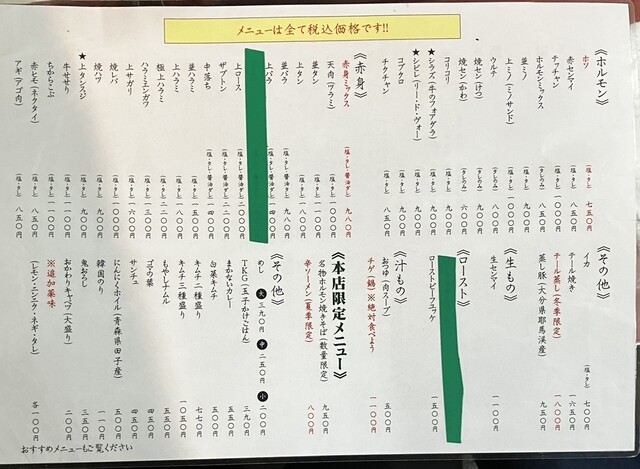 メニューは全て税込価格です!!
《ホルモン》
ホソ (塩・タレ) 七五〇円
赤センマイ (塩・タレ)
テッチャン (塩・タレ)
ホルモンミックス (塩・タレ) 八五〇円
並ミノ (塩・タレ)
上ミノ(ミノサンド) (塩・タレ)
ウルテ (塩・タレ)
焼セン(けつ) (タレのみ) 九〇〇円
焼セン(かわ) (タレのみ) 六〇〇円
コリコリ (塩・タレ)
★シラズ(牛のフォアグラ) (塩・タレ)
★シビレ(リー・ド・ヴォー) (塩・タレ)
コブクロ (塩・タレ)
チクチャン (塩・タレ) 八五〇円
《赤身》
赤身ミックス (塩・タレ・醤油ダレ) 九八〇円
天肉(ツラミ) (塩・タレ) 一〇〇〇円
並タン (塩・タレ)
上タン (塩・タレ)
並バラ (塩・タレ・醤油ダレ) 九八〇円
上バラ (塩・タレ・醤油ダレ) 一四〇〇円
上ロース (塩・タレ・醤油ダレ) 二〇〇〇円
ザブトン (塩・タレ・醤油ダレ) 二〇〇〇円
中落ち (塩・タレ・醤油ダレ) 一四〇〇円
並ハラミ (塩・タレ)
上ハラミ (塩・タレ) 一八〇〇円
極上ハラミ (塩・タレ)
ハラミエンガワ (塩・タレ) 一三〇〇円
上サガリ (塩・タレ) 一六〇〇円
焼レバ (塩・タレ)
焼ハツ (塩・タレ) 九〇〇円
★上タンスジ (塩・タレ) 九〇〇円
牛せせり (塩・タレ)
ちからこぶ (塩・タレ) 九〇〇円
赤ヒモ(ネクタイ) (塩・タレ) 八五〇円
アギ(アゴ肉) (塩・タレ) 八五〇円
《その他》
イカ (塩・タレ) 七〇〇円
テール焼き 一六五〇円
テール蒸し(冬季限定) 一八〇〇円
蒸し豚(大分県耶馬渓産) 九五〇円
《生もの》
生センマイ 一一〇〇円
《ロースト》
ローストビーフユッケ 一五〇〇円
《汁もの》
おつゆ(肉スープ) 五〇〇円
チゲ(鍋)※絶対食べよう 一一〇〇円
《本店限定メニュー》
名物ホルモン焼きそば(数量限定) 九五〇円
辛ソーメン(夏季限定) 八〇〇円
《その他》
めし 大 三九〇円 中 二五〇円 小 二〇〇円
TKG(玉子かけごはん) 三九〇円
まかないカレー 五五〇円
白菜キムチ 五五〇円
キムチ二種盛り 七七〇円
キムチ三種盛り 一〇五〇円
もやしナムル 四五〇円
ゴマの葉 四五〇円
サンチュ 五五〇円
にんにくホイル(青森県田子産) 五〇〇円
韓国のり 一一〇円
鬼おろし 三五〇円
おかわりキャベツ(大盛り) 二〇〇円
※追加薬味
(レモン・ニンニク・ネギ・タレ) 各一〇〇円
おすすめメニューもご覧ください